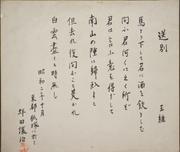 送別 王維
馬より下りて君に酒を飲ましむ
問ふ君何くにか之く所ぞ
君は言ふ意を得ずして
南山の陲に帰臥すと
但去れ復問ふこと莫かれ
白雲尽くる時無し
昭和二十年十月
東都
坪田譲治